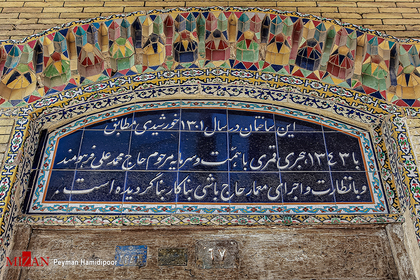 این ساختمان در سال ۱۳۰۱ خورشیدی مطابق
با ۱۳۴۳ هجری قمری با همت و سرمایه مرحوم حاج محمد علی فرهومند
و با نظارت و اجرای معمار حاج باشی بناکار بنا گردیده است.
۱۷
MIZAN
Peyman Hamidipoor